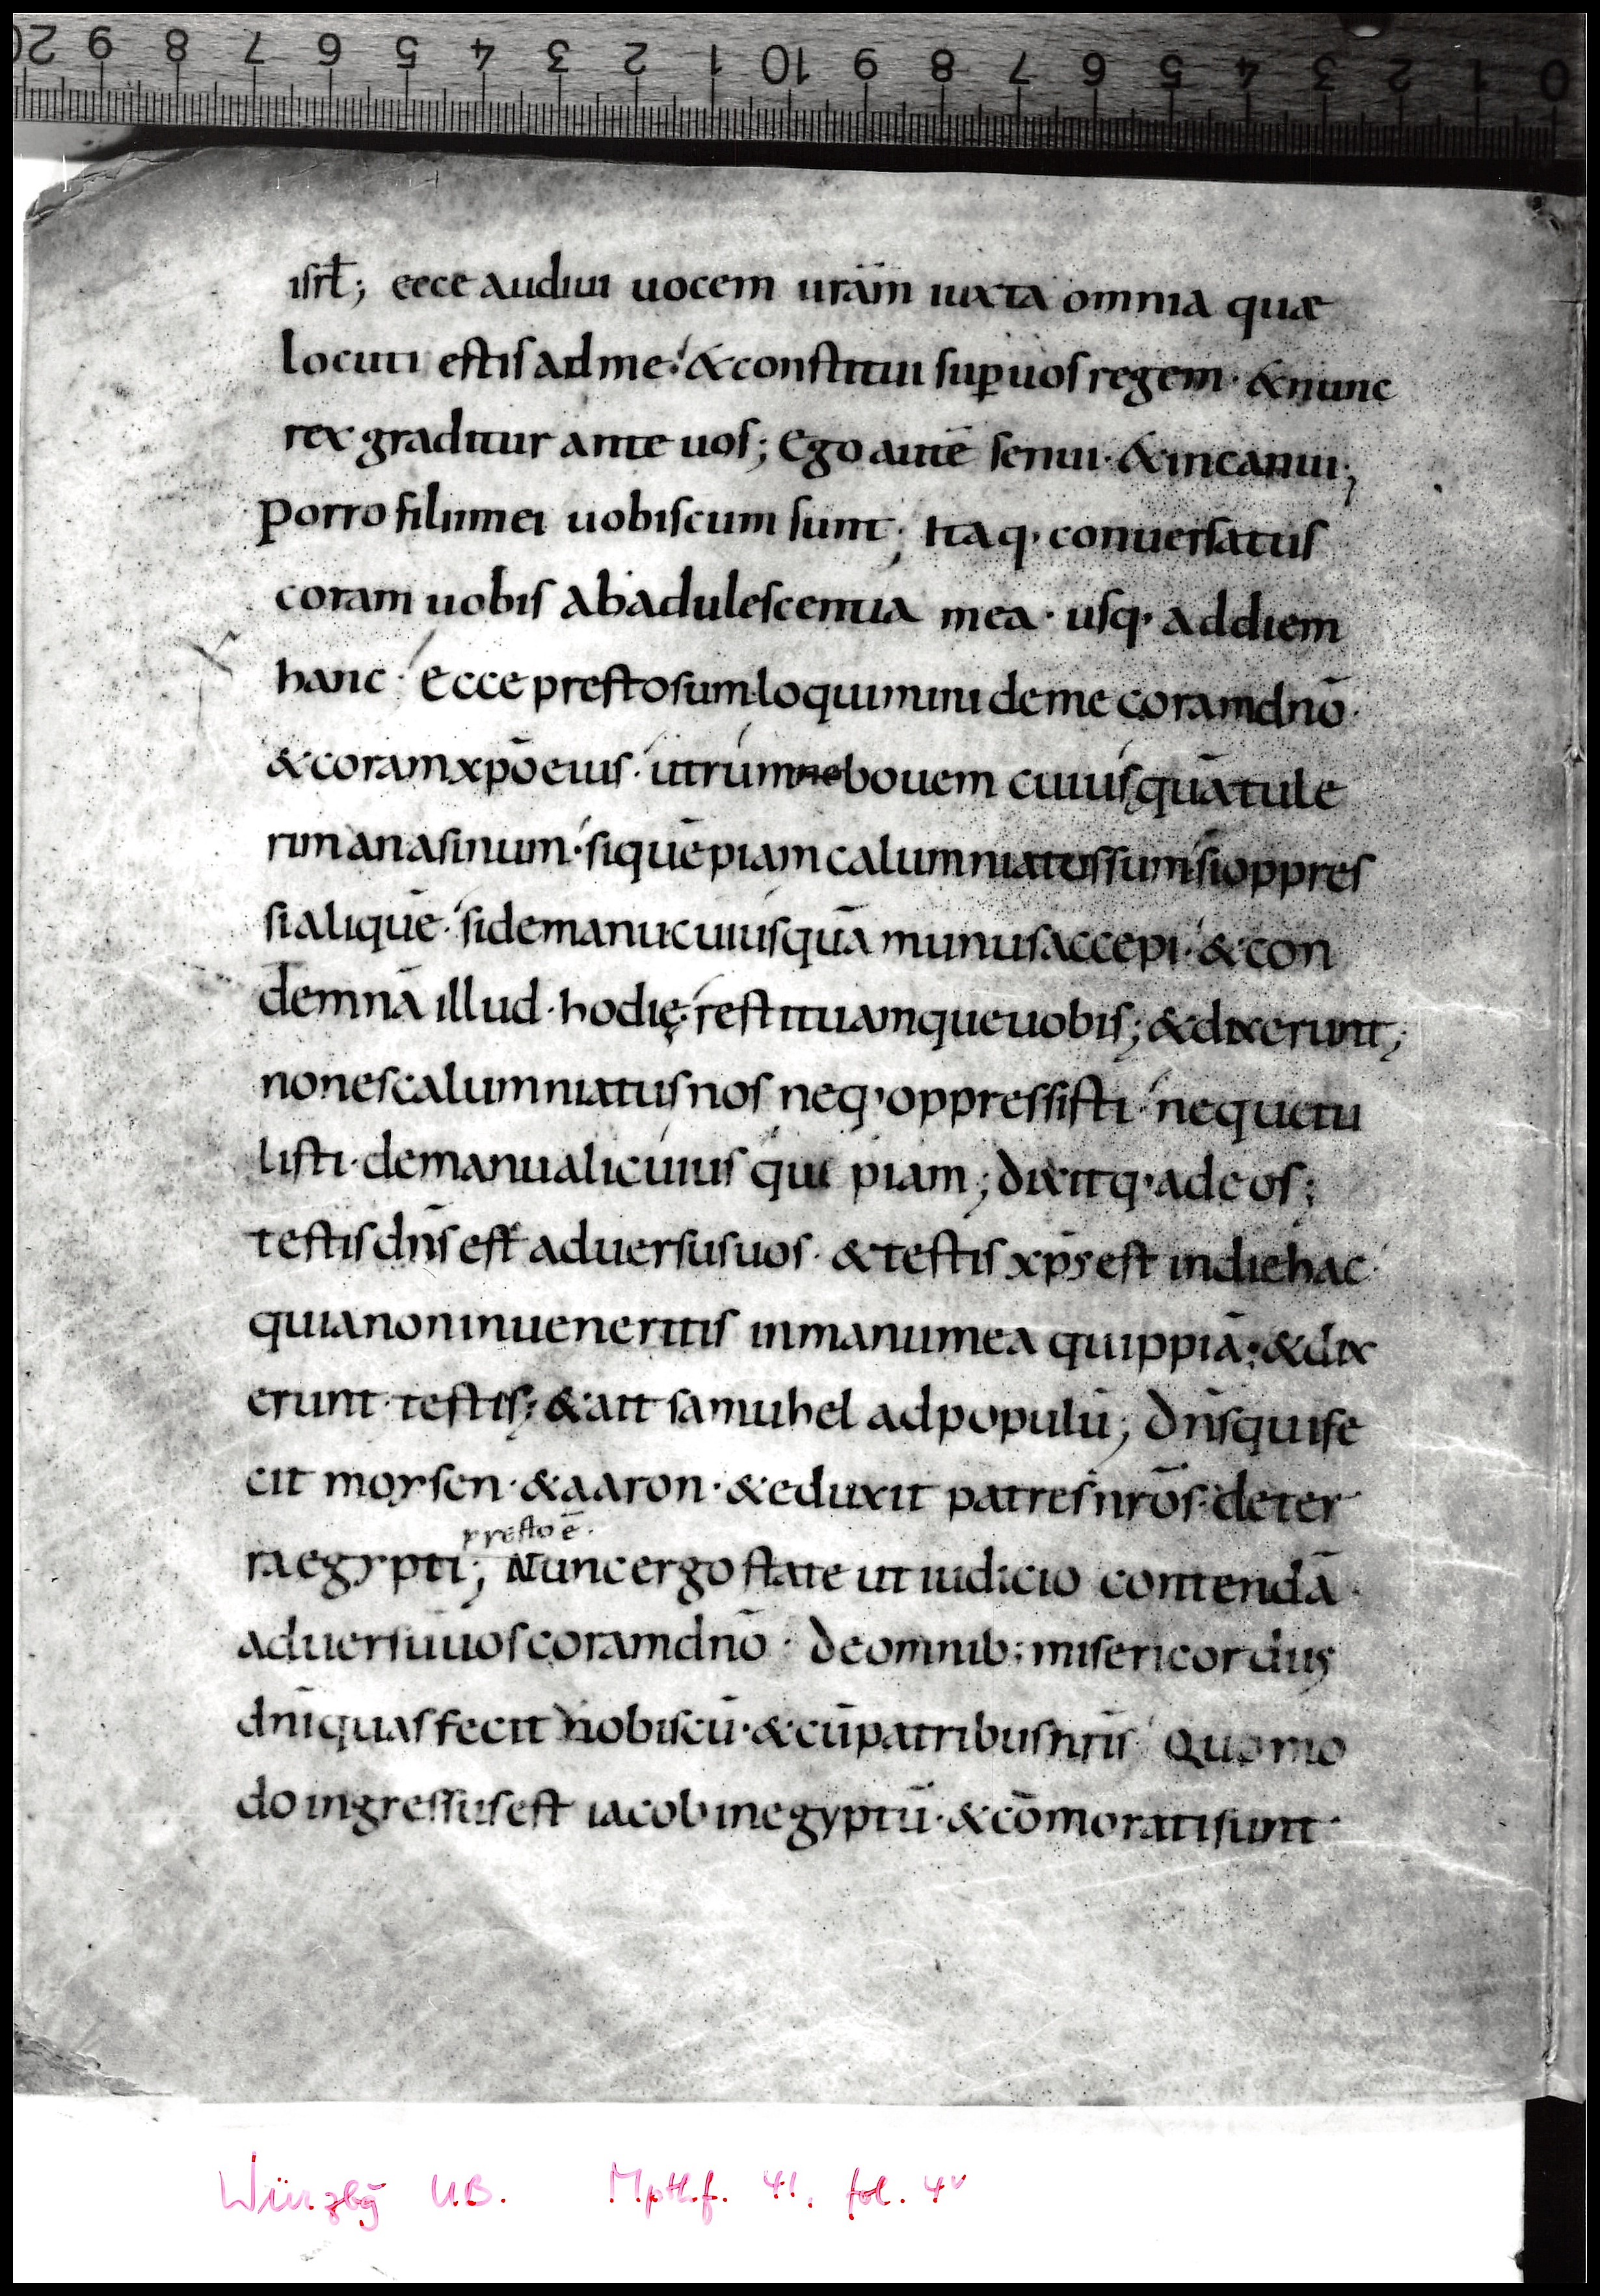 20 9 8 7 6 5 4 3 2 1 10 9 8 7 6 5 4 3 2 1 0
isrł; ecce audiui uocem urām iuxta omnia quæ
locuti estis ad me· & constitui suꝑ uos regem· & nunc
rex graditur ante uos; Ego autē senui· & incanui;
porro filii mei uobiscum sunt; Itaq· conuersatus
coram uobis ab adulescentia mea· usq· ad diem
hanc· Ecce presto sum loquimini de me coram dnō·
& coram xpō eius· utrumne bouem cuiusquā tule
rim an asinum· si quēpiam calumniatus sum si oppres
si aliquē· si de manu cuiusquā munus accepi· & con
demnā illud· hodię· restituamque uobis; & dixerunt;
non es calumniatus nos neq· oppressisti· neque tu
listi· de manu alicuius qui piam; dixitq· ad eos;
testis dn̄s est aduersus uos· & testis xp̄s est in die hac·
quia non inueneritis in manu mea quippiā· & dix
erunt· testis; & ait samuhel ad populū; dn̄s qui fe
cit moysen· & aaron· & eduxit patres nr̄os· de ter
presto ē·
ra egypti; Nunc ergo state ut iudicio contendā·
aduersū uos coram dnō· de omnib; misericordiis
dn̄i quas fecit nobiscū· & cū patribus nr̄is· Quomo
do ingressus est iacob in egyptū· & cōmorati sunt·
Würzbg U.B. M.p.th.f. 41. fol. 4v